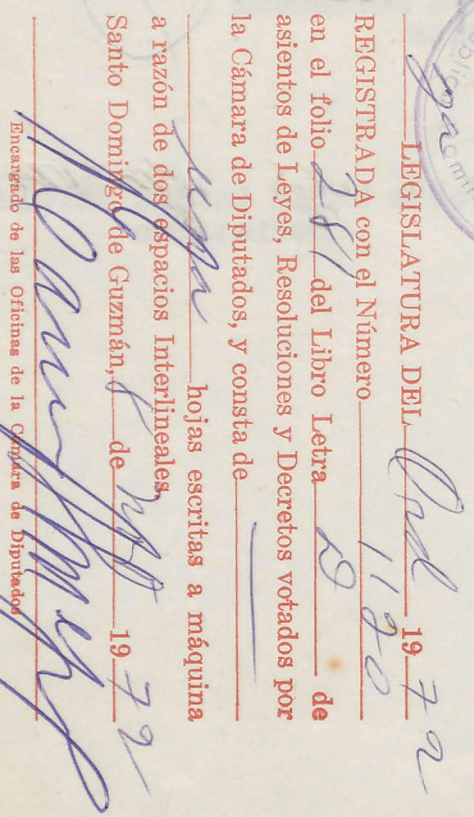 2da LEGISLATURA DEL Ord 1972
REGISTRADA con el Número 1120
en el folio 281 del Libro Letra D de
asientos de Leyes, Resoluciones y Decretos votados por
la Cámara de Diputados, y consta de
una hojas escritas a máquina
a razón de dos espacios Interlineales
Santo Domingo de Guzmán, 8 de 1972
Encargado de las Oficinas de la Cámara de Diputados